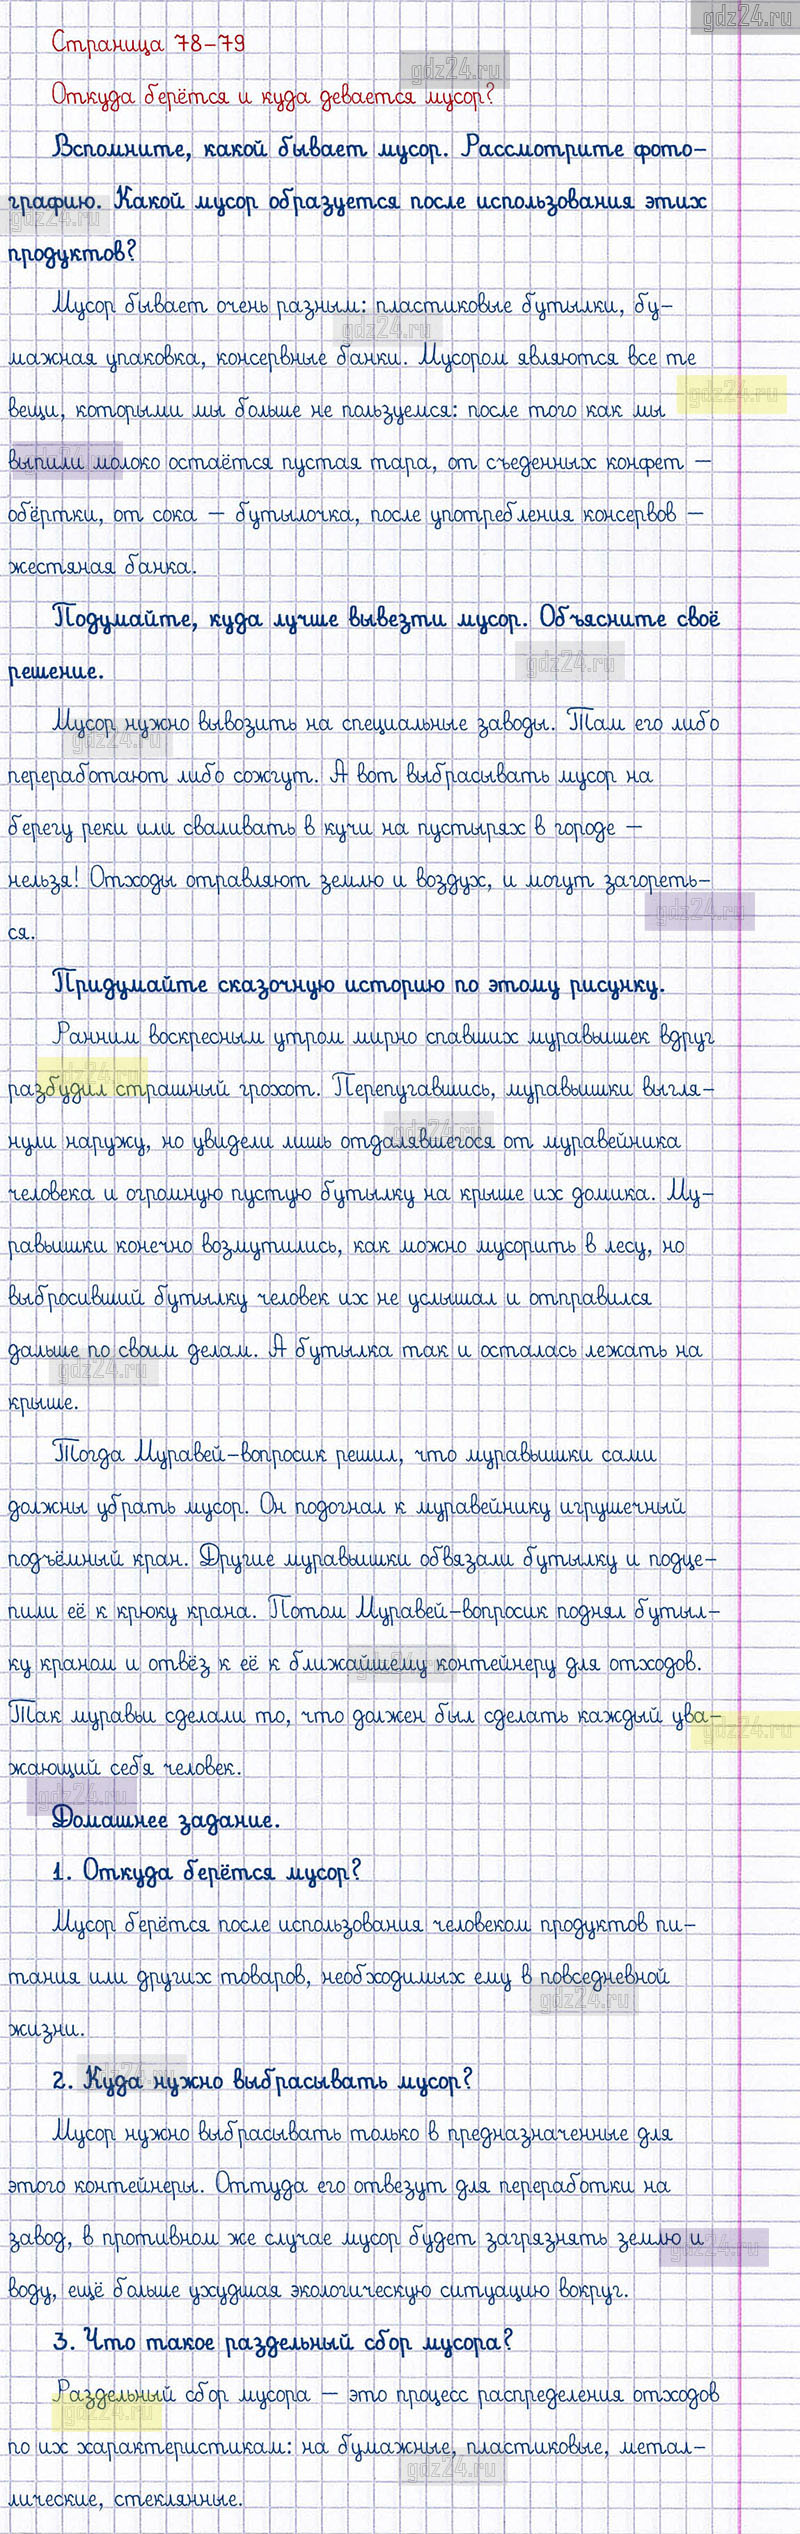 gdz24.ru
Страница 78-79
gdz24.ru
Откуда берётся и куда девается мусор?
Вспомните, какой бывает мусор. Рассмотрите фото-
графию. Какой мусор образуется после использования этих
gdz24.ru
продуктов?
Мусор бывает очень разным: пластиковые бутылки, бу-
gdz24.ru
мажная упаковка, консервные банки. Мусором являются все те
gdz24.ru
вещи, которыми мы больше не пользуемся: после того как мы
выпили молоко остаётся пустая тара, от съеденных конфет —
gdz24.ru
обёртки, от сока — бутылочка, после употребления консервов —
жестяная банка.
Подумайте, куда лучше вывезти мусор. Объясните своё
gdz24.ru
решение.
Мусор нужно вывозить на специальные заводы. Там его либо
gdz24.ru
переработают либо сожгут. А вот выбрасывать мусор на
берегу реки или сваливать в кучи на пустырях в городе —
нельзя! Отходы отравляют землю и воздух, и могут загореть-
gdz24.ru
ся.
Придумайте сказочную историю по этому рисунку.
Ранним воскресным утром мирно спавших муравьишек вдруг
gdz24.ru
разбудил страшный грохот. Перепугавшись, муравьишки выгля-
gdz24.ru
нули наружу, но увидели лишь отдалявшегося от муравейника
человека и огромную пустую бутылку на крыше их домика. Му-
равьишки конечно возмутились, как можно мусорить в лесу, но
выбросивший бутылку человек их не услышал и отправился
дальше по своим делам. А бутылка так и осталась лежать на
gdz24.ru
крыше.
Тогда Муравей-вопросик решил, что муравьишки сами
должны убрать мусор. Он подогнал к муравейнику игрушечный
подъёмный кран. Другие муравьишки обвязали бутылку и подце-
пили её к крюку крана. Потом Муравей-вопросик поднял бутыл-
ку краном и отвёз к её к ближайшему контейнеру для отходов.
gdz24.ru
Так муравьи сделали то, что должен был сделать каждый ува-
gdz24.ru
жающий себя человек.
gdz24.ru
Домашнее задание.
1. Откуда берётся мусор?
Мусор берётся после использования человеком продуктов пи-
тания или других товаров, необходимых ему в повседневной
gdz24.ru
жизни.
2. Куда нужно выбрасывать мусор?
gdz24.ru
Мусор нужно выбрасывать только в предназначенные для
этого контейнеры. Оттуда его отвезут для переработки на
завод, в противном же случае мусор будет загрязнять землю и
gdz24.ru
воду, ещё больше ухудшая экологическую ситуацию вокруг.
3. Что такое раздельный сбор мусора?
Раздельный сбор мусора — это процесс распределения отходов
gdz24.ru
по их характеристикам: на бумажные, пластиковые, метал-
gdz24.ru
лические, стеклянные.